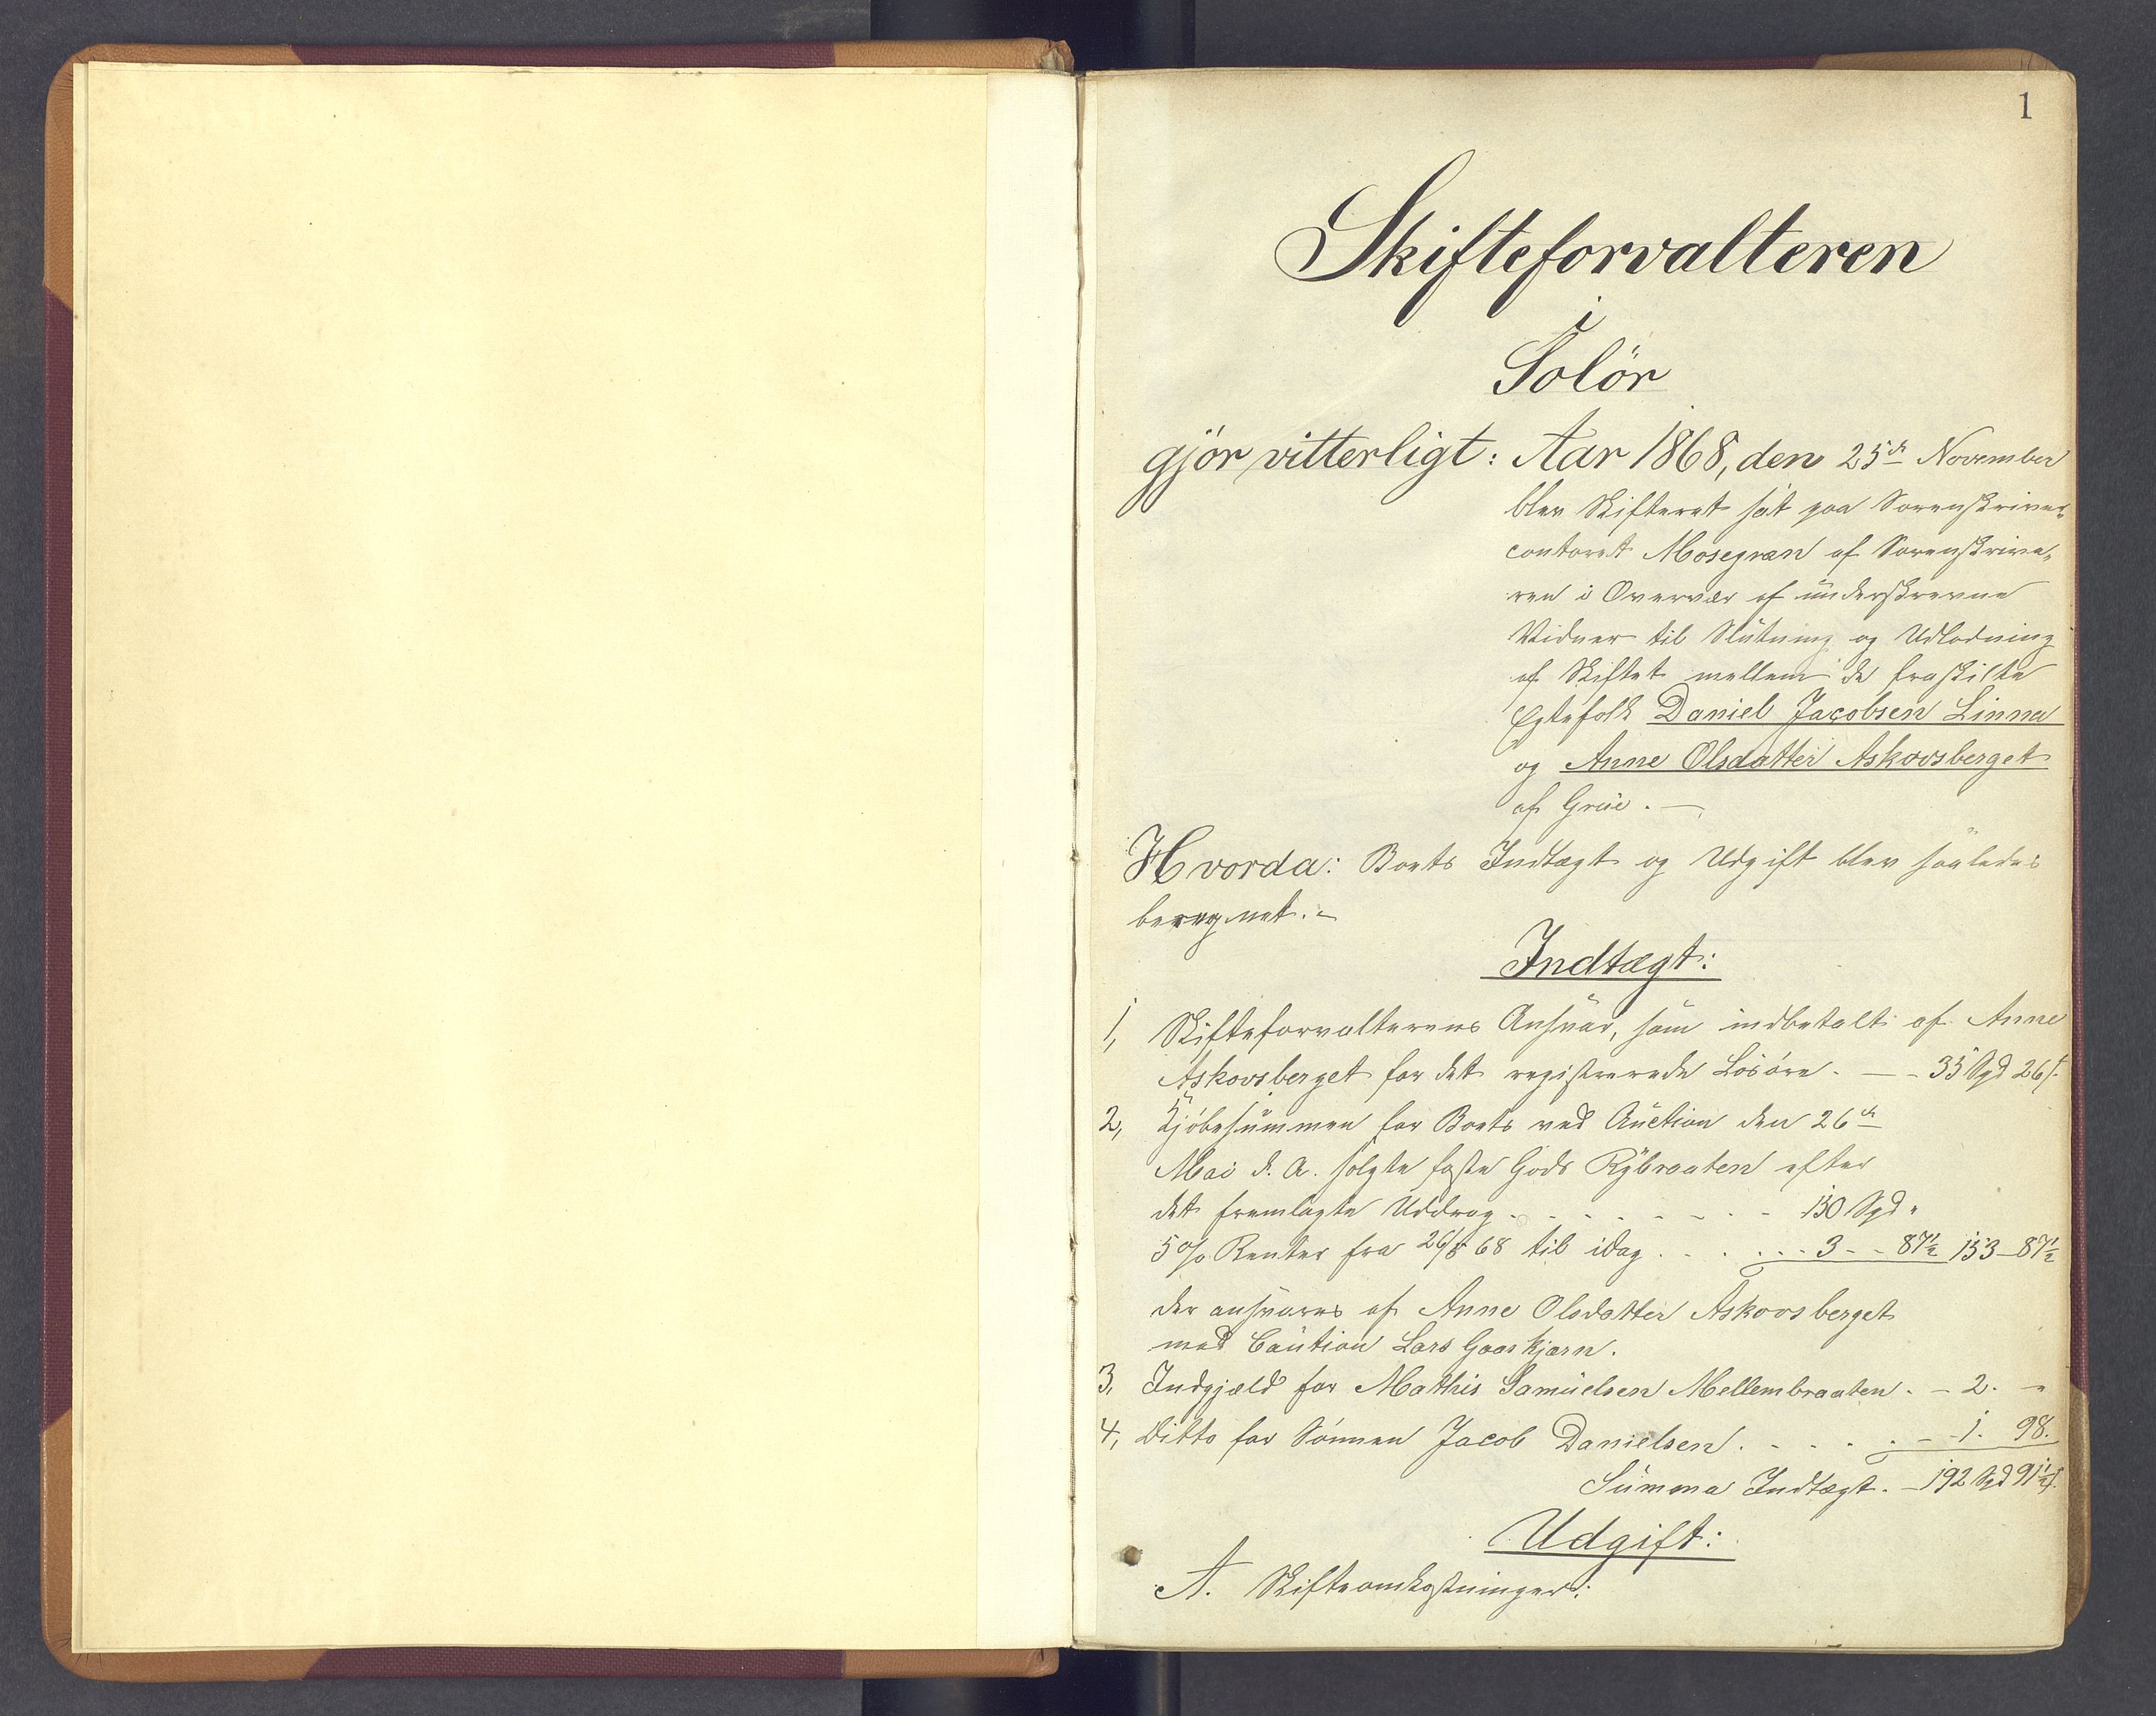 1
Skifteforvalteren
i
Solör
gjör vitterligt: Aar 1868, den 25de November
blev Skifteret sat paa Sorenskriver-
contoret Mosegran af Sorenskrive-
ren i Overvær af underskrevne
Vidner til Slutning og Udlodning
af Skiftet mellem de fraskilte
Egtefolk Daniel Jacobsen Linna
og Anne Olsdatter Askovsberget
af Grue. —
Hvorda: Boets Indtægt og Udgift blev saaledes
beregnet. -
Indtægt:
1, Skifteforvalterens Ansvar, som indbetalt af Anne
Askovsberget for det registrerede Lösöre. — - 35 Spd 26 ß.
2, Kjöbesummen for Boets ved Auction den 26de
Mai d. A. solgte faste Gods Rybraaten efter
det fremlagte Uddrag - - - - - - - - 150 Spd "
5 % Renter fra 26/5 68 til idag . . . . . . 3 - - 87½ 153 - 87½
der ansvares af Anne Olsdatter Askovsberget
med Caution Lars Gaaskjærn.
3, Indgjæld for Mathis Samuelsen Mellembraaten. - 2. - "
4, Ditto for Sönnen Jacob Danielsen. - . . . - - 1. 98.
Summa Indtægt. - 192 Spd 91½ ß.
Udgift:
A. Skifteomkostninger: